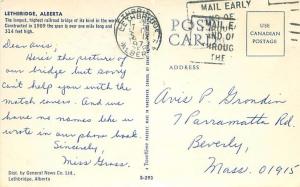 LETHBRIDGE, ALBERTA
The longest, highest railroad bridge of its kind in the world.
Constructed in 1909 the span is over one mile long and
314 feet high.
LETHBRIDGE
ALBERTA
MAIL EARLY
THE
POST
CARD
USE
CANADIAN
POSTAGE
Dear Avis,
Here's the picture of
our bridge but sorry
can't help you with the
match covers. And we
have no names like u
wrote in our phone book.
Sincerely,
Miss Gross.
Avis P. Grondin
7 Parramatta Rd.
Beverly,
Mass. 01915
Dist. by General News Co. Ltd.
Lethbridge, Alberta
S-292